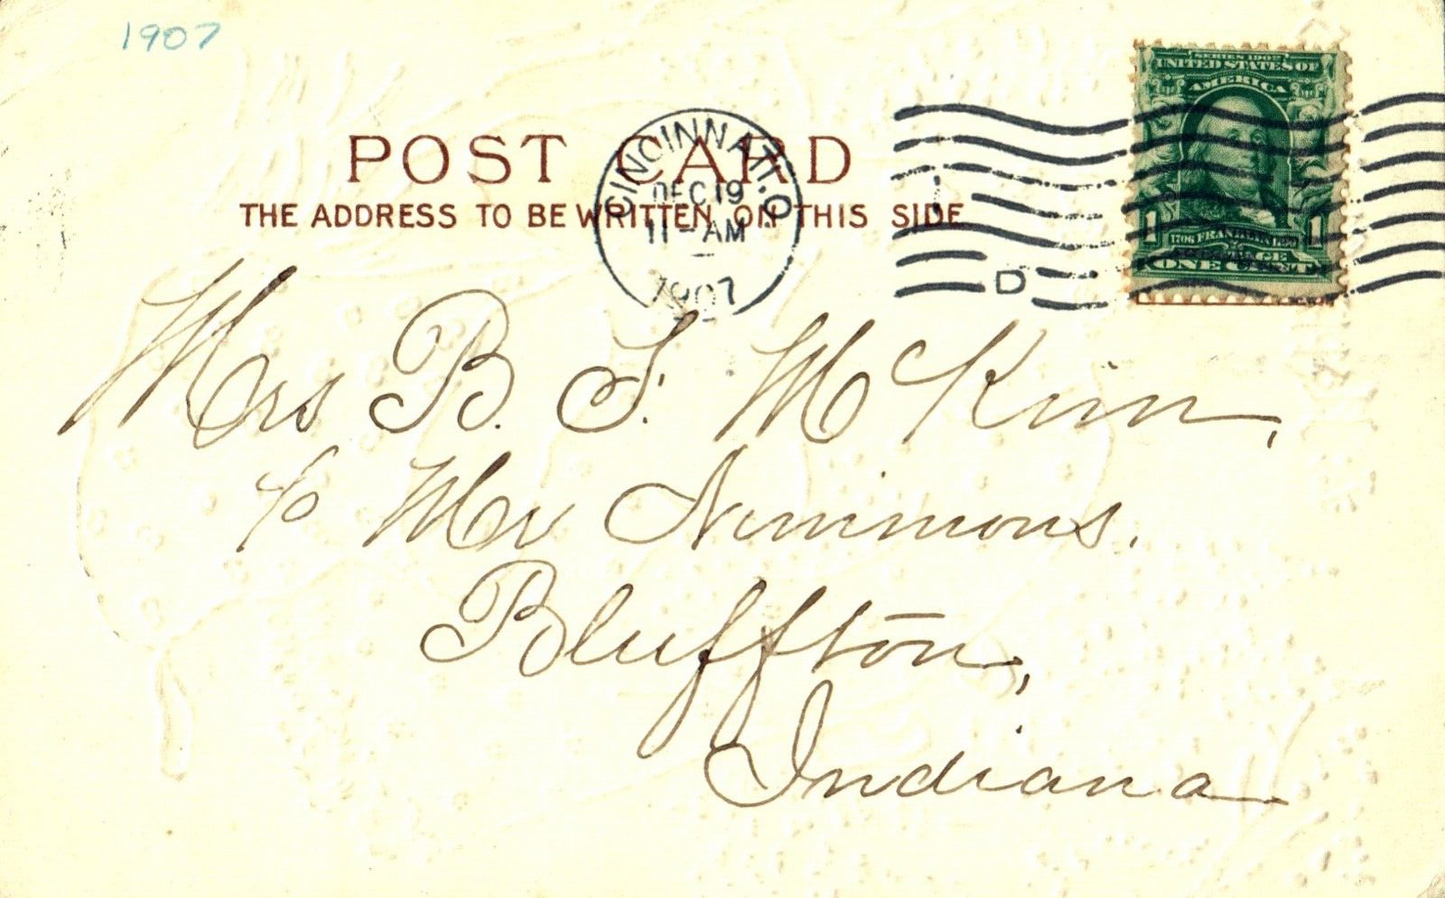 1907
SERIES 1902
UNITED STATES OF
AMERICA
POST CARD
CINCINNATI, O.
DEC 19
11-AM
1907
THE ADDRESS TO BE WRITTEN ON THIS SIDE
D
1 1
1706 FRANKLIN 1790
ONE CENT
Mrs B. F. McKim,
c/o Mr Nimmons.
Bluffton,
Indiana.